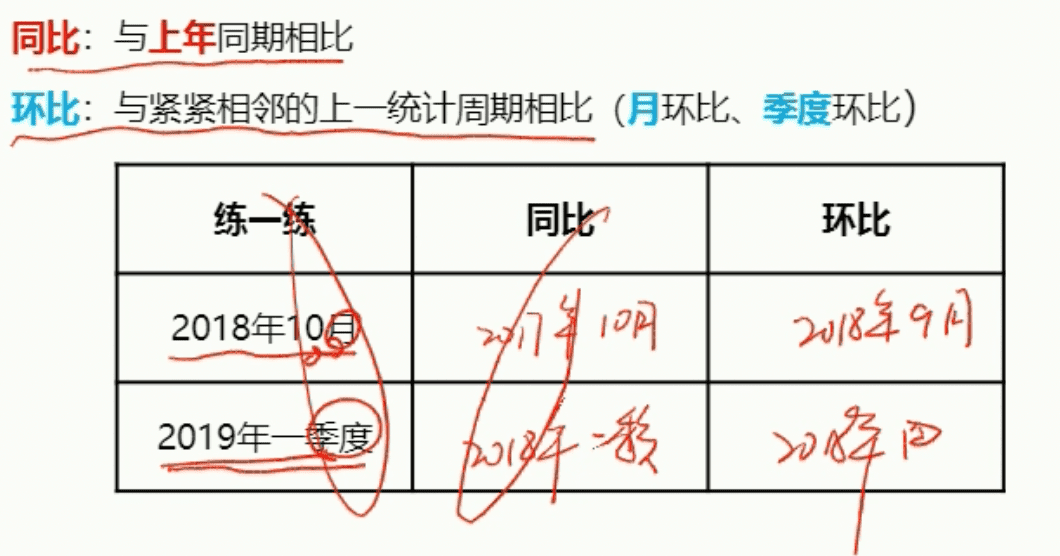 同比：与上年同期相比
环比：与紧紧相邻的上一统计周期相比（月环比、季度环比）
练一练 同比 环比
2018年10月 2017年10月 2018年9月
2019年一季度 2018年一季 2018年四